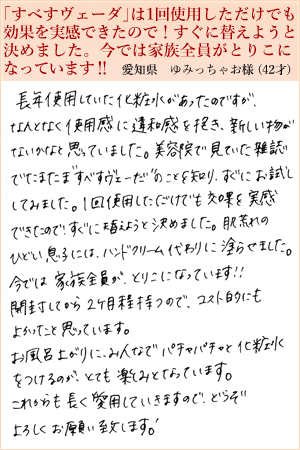 「すべすヴェーダ」は1回使用しただけでも
効果を実感できたので！すぐに替えようと
決めました。今では家族全員がとりこに
なっています!! 愛知県 ゆみっちゃお様（42才）
長年使用していた化粧水があったのですが、
なんとなく使用感に違和感を抱き、新しい物が
ないかなと思っていました。美容院で見ていた雑誌
でたまたま"すべすヴェーダ"のことを知り、すぐにお試し
してみました。1回使用しただけでも効果を実感
できたので！すぐに替えようと決めました。肌荒れの
ひどい息子には、ハンドクリーム代わりに塗らせました。
今では家族全員が、とりこになっています!!
開封してから2ヶ月程持つので、コスト的にも
よかったと思っています。
お風呂上がりに、みんなでパチャパチャと化粧水
をつけるのが、とても楽しみとなっています。
これからも長く愛用していきますので、どうぞ
よろしくお願い致します!